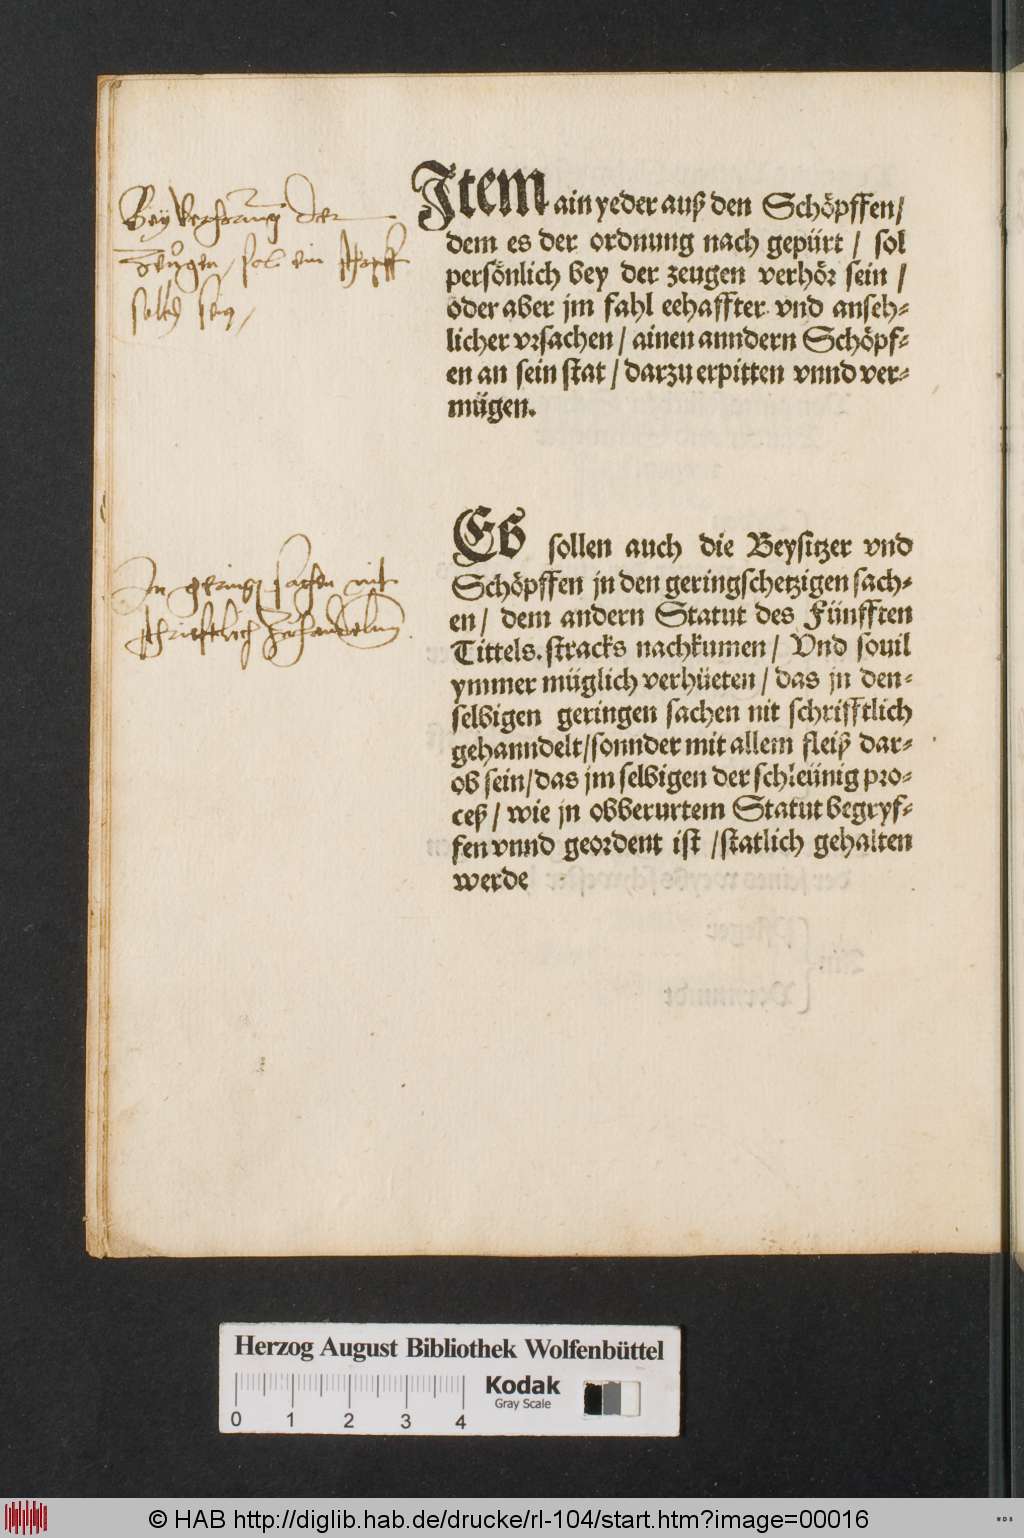 Bey verhörung der
Zeugen, sol ein schopff
selbs sein,
Jtem ain yeder auß den Schöpffen/
dem es der ordnung nach gepürt / sol
persönlich bey der zeugen verhör sein /
oder aber jm fahl eehaffter vnd anseh-
licher vrsachen / ainen anndern Schöpf-
en an sein stat / darzu erpitten vnnd ver-
mügen.
In gering sachen nit
schrifftlich zuhandeln.
Es sollen auch die Beysitzer vnd
Schöpffen jn den geringschetzigen sach-
en / dem andern Statut des Fünfften
Tittels. stracks nachkumen / Vnd souil
ymmer müglich verhüeten / das jn den-
selbigen geringen sachen nit schrifftlich
gehanndelt/sonnder mit allem fleiß dar-
ob sein/das jm selbigen der schleünig pro-
ceß / wie jn obberurtem Statut begryf-
fen vnnd geordent ist /statlich gehalten
werde
Herzog August Bibliothek Wolfenbüttel
Kodak
Gray Scale
0 1 2 3 4
© HAB http://diglib.hab.de/drucke/rl-104/start.htm?image=00016